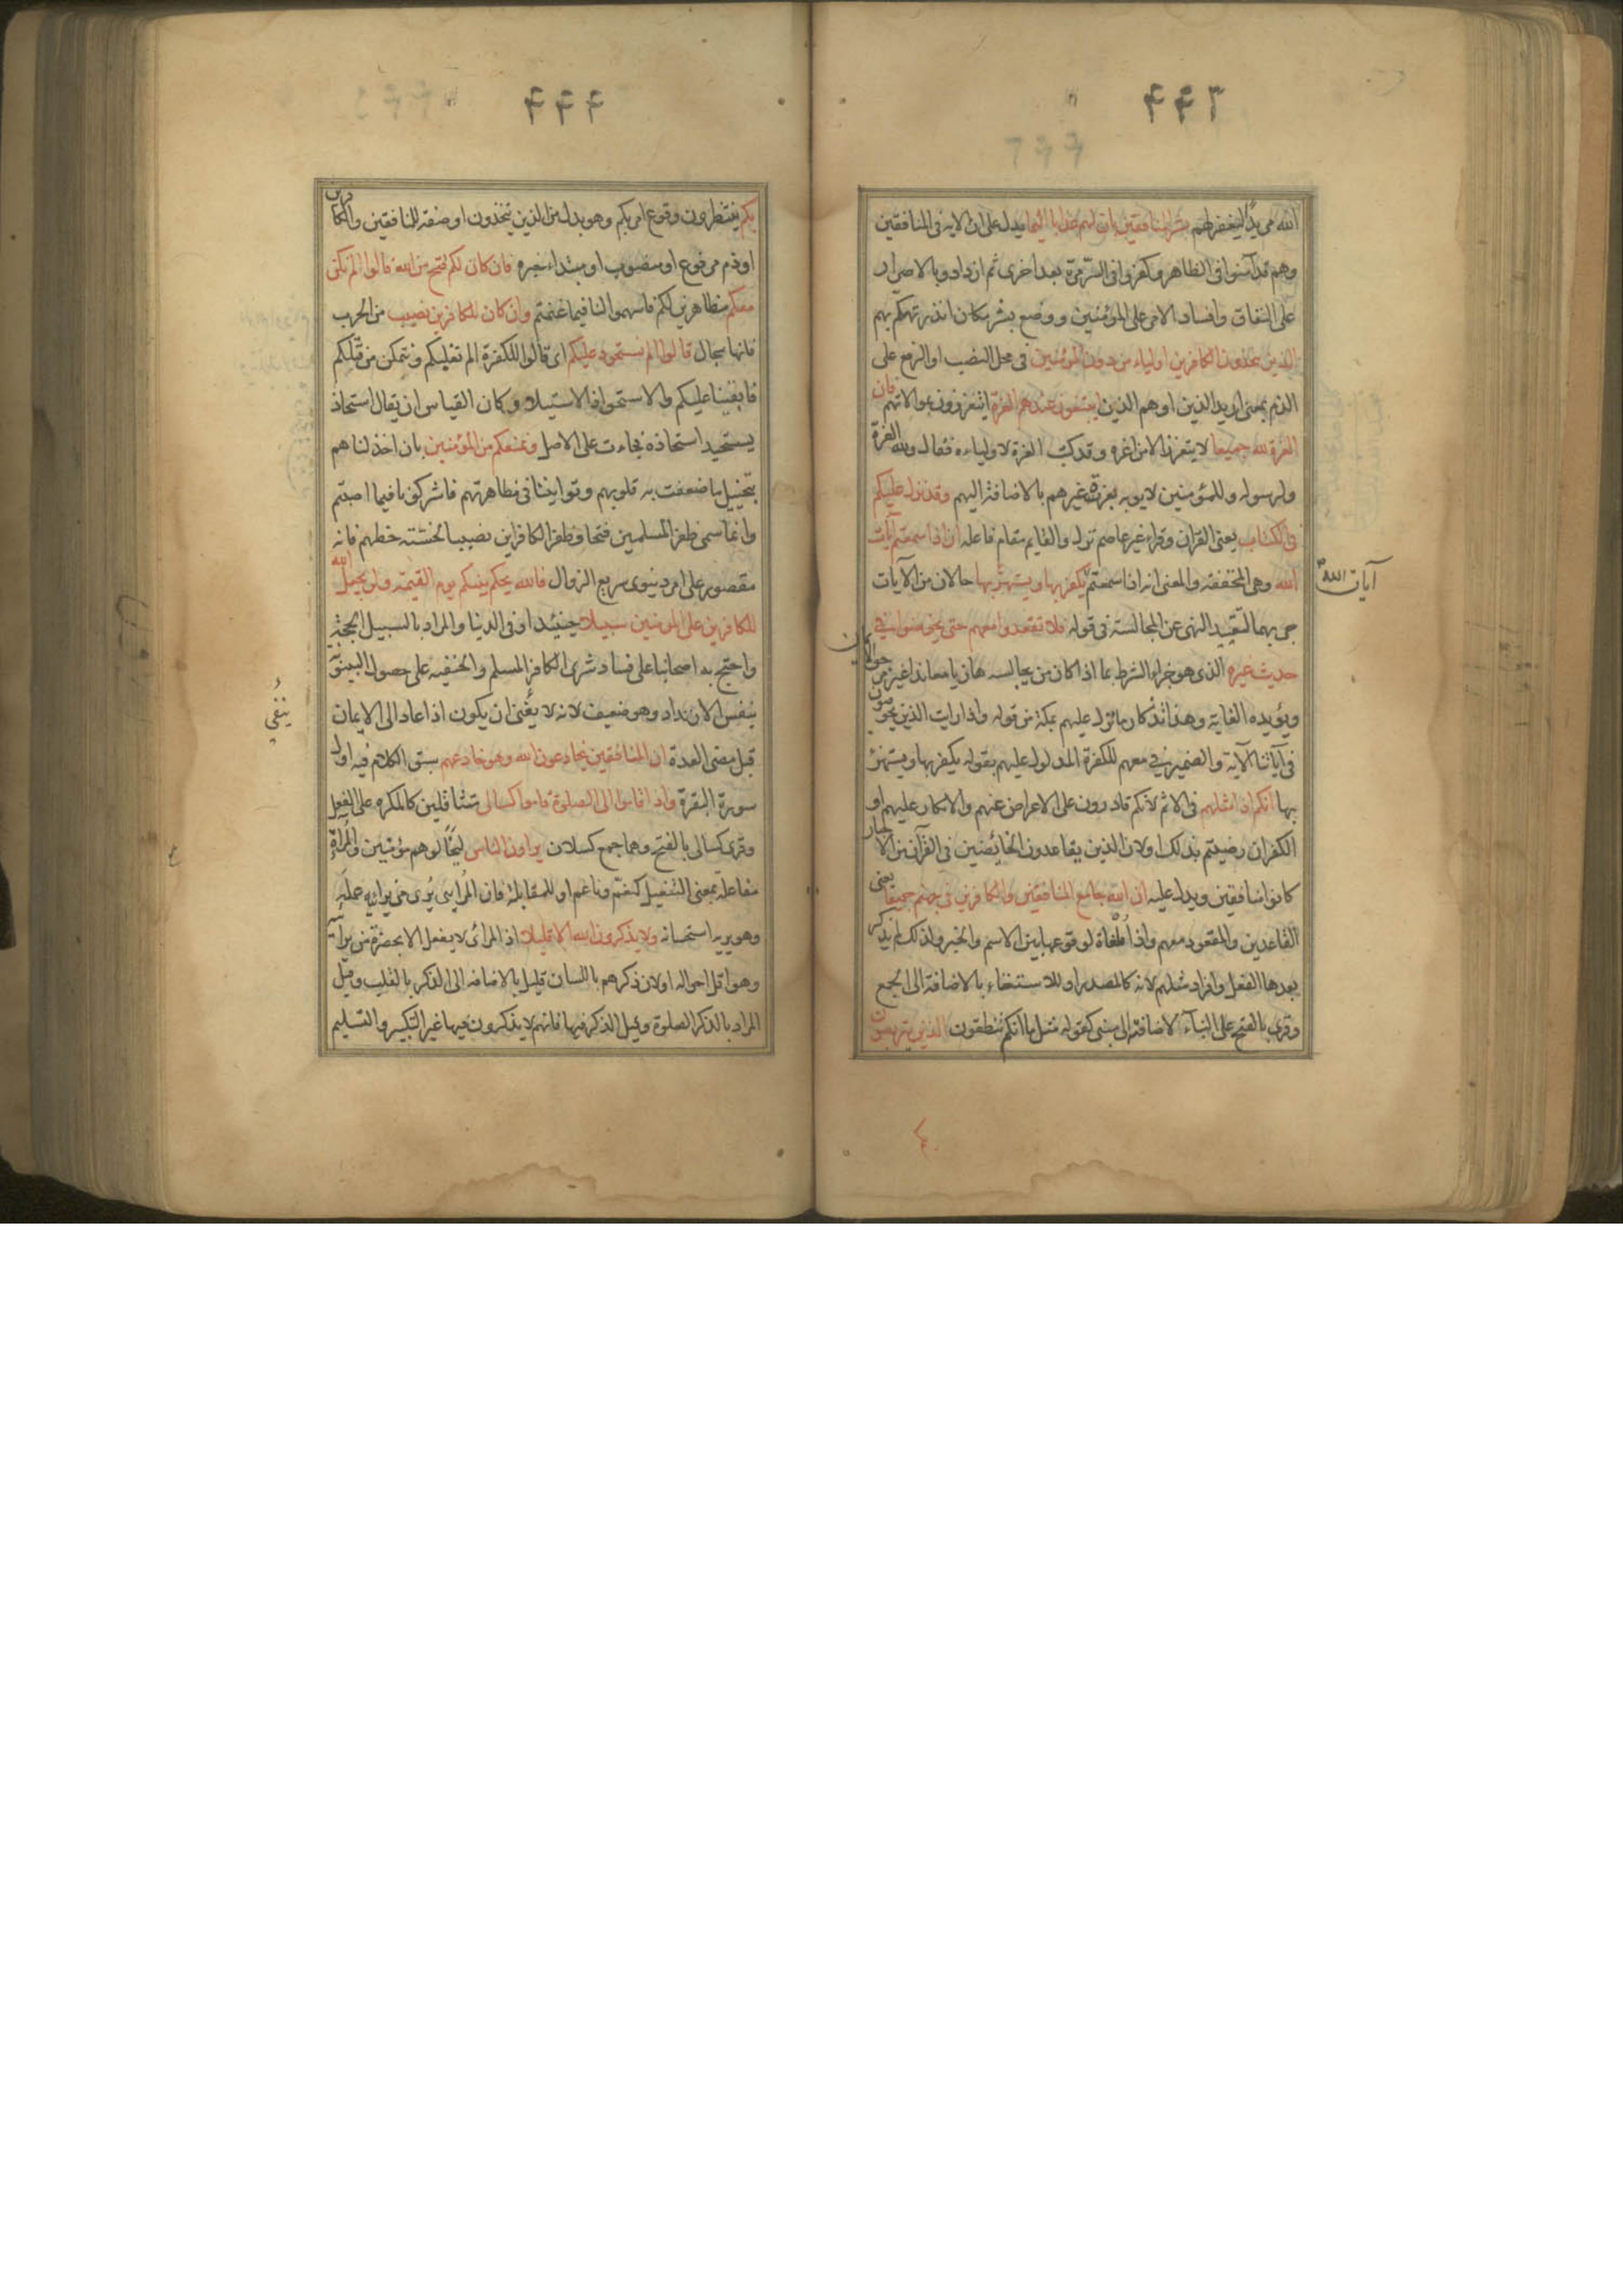 ٤٤٦
الله مريدا ليغفر لهم بشر المنافقين بان لهم عذابا اليما يدل على ان الاية فى المنافقين
وهم قد آمنوا فى الظاهر وكفروا فى السر مرة بعد اخرى ثم ازدادوا بالاصرار
على النفاق وافساد الامر على المؤمنين ووضع بشر مكان انذر تهكم بهم
الذين يتخذون الكافرين اولياء من دون المؤمنين فى محل النصب او الرفع على
الذم بمعنى اريد الذين او هم الذين ايبتغون عندهم العزة ايتعززون بموالاتهم فان
العزة لله جميعا لا يتعزز الا من اعزه وقد كتب العزة لاوليائه فقال ولله العزة
ولرسوله وللمؤمنين لا يوبه بعزة غيرهم بالاضافة اليهم وقد نزل عليكم
فى الكتاب يعنى القران وقراء غير عاصم نزل والقايم مقام فاعله ان اذا سمعتم آيات
الله وهى المخففة والمعنى انه اذا سمعتم يكفر بها ويستهزئ بها حالان من الآيات
آيات الله
جئ بهما لتقييد النهى عن المجالسة فى قوله فلا تقعدوا معهم حتى يخوضوا فى
حديث غيره الذى هو جزاء الشرط بما اذا كان من يجالسه هازيا معاندا غير مرجو
ويؤيده الغاية وهذا تذكار ما نزل عليهم بمكة من قوله واذا رايت الذين يخوضون
فى آياتنا الآية والضمير فى معهم للكفرة المدلول عليهم بقوله يكفر بها ويستهزئ
بها انكم اذا مثلهم فى الاثم لانكم قادرون على الاعراض عنهم والانكار عليهم او
الكفر ان رضيتم بذلك او لان الذين يقاعدون الخائضين فى القرآن من الاحبار
كانوا منافقين ويدل عليه ان الله جامع المنافقين والكافرين فى جهنم جميعا يعنى
القاعدين والمقعود معهم واذا ملغاة لوقوعها بين الاسم والخبر ولذلك لم يذكر
بعدها الفعل وافراد مثلهم لانه كالمصدر او للاستغناء بالاضافة الى الجمع
وقرى بالفتح على البناء لاضافته الى مبنى كقوله مثل ما انكم تنطقون الذين يتربصون
٤٤٤
بكم ينتظرون وقوع امر بكم وهو بدل من الذين يتخذون او صفة للمنافقين والكافرين
او ذم مرفوع او منصوب او مبتداء خبره فان كان لكم فتح من الله قالوا الم نكن
معكم مظاهرين لكم فاسهموا لنا فيما غنمتم وان كان للكافرين نصيب من الحرب
فانها سجال قالوا الم نستحوذ عليكم اى قالوا للكفرة الم نغلبكم ونتمكن من قتلكم
فابقينا عليكم والاستحواذ الاستيلا وكان القياس ان يقال استحاذ
يستحيذ استحاذة فجاءت على الاصل ونمنعكم من المؤمنين بان اخذلناهم
بتخييل ما ضعفت به قلوبهم وتوانينا فى مظاهرتهم فاشركونا فيما اصبتم
وانما سمى ظفر المسلمين فتحا وظفر الكافرين نصيبا لخسته حظهم فانه
مقصور على امر دنيوى سريع الزوال فالله يحكم بينكم يوم القيمة ولن يجعل الله
للكافرين على المومنين سبيلا حينئذ او فى الدنيا والمراد بالسبيل الحجة
واحتج به اصحابنا على فساد شرى الكافر المسلم والحنفيه على حصول البينونة
بنفس الارتداد وهو ضعيف لانه لا ينفى ان يكون اذا عاد الى الايمان
ينفى
قبل مضى العدة ان المنافقين يخادعون الله وهو خادعهم سبق الكلام فيه اول
سورة البقرة واذا قاموا الى الصلوة قاموا كسالى متثاقلين كالمكره على الفعل
وقرى كسالى بالفتح وهما جمع كسلان يراؤن الناس ليخالوهم مؤمنين والمراءاة
مفاعلة بمعنى التفعيل كنعم وناعم او للمقابلة فان المرائى يرى من يرائيه عمله
وهو يريه استحسانه ولا يذكرون الله الا قليلا اذ المرائى لا يفعل الا بحضرة من يرائيه
وهو اقل احواله او لان ذكرهم باللسان قليل بالاضافه الى الذكر بالقلب وقيل
المراد بالذكر الصلوة وقيل الذكر فيها فانهم لا يذكرون فيها غير التكبير والتسليم